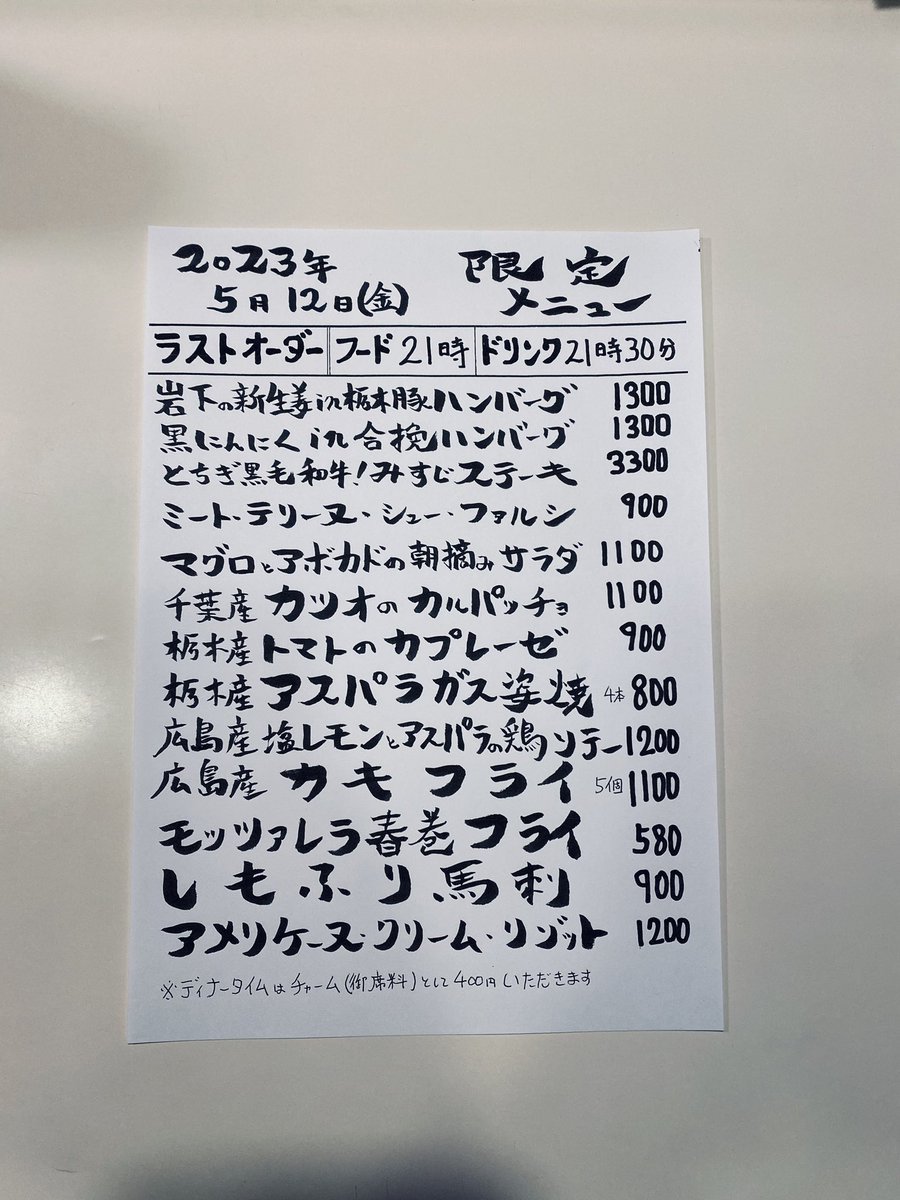 2023年 限定
5月12日(金) メニュー
ラストオーダー フード21時 ドリンク21時30分
岩下の新生姜in栃木豚ハンバーグ 1300
黒にんにくin合挽ハンバーグ 1300
とちぎ黒毛和牛!みすじステーキ 3300
ミート・テリーヌ・シュー・ファルシ 900
マグロとアボカドの朝摘みサラダ 1100
千葉産カツオのカルパッチョ 1100
栃木産トマトのカプレーゼ 900
栃木産アスパラガス姿焼 4本 800
広島産塩レモンとアスパラの鶏ソテー 1200
広島産カキフライ 5個 1100
モッツァレラ春巻フライ 580
しもふり馬刺 900
アメリケーヌ・クリーム・リゾット 1200
※ディナータイムはチャーム(御席料)として400円いただきます